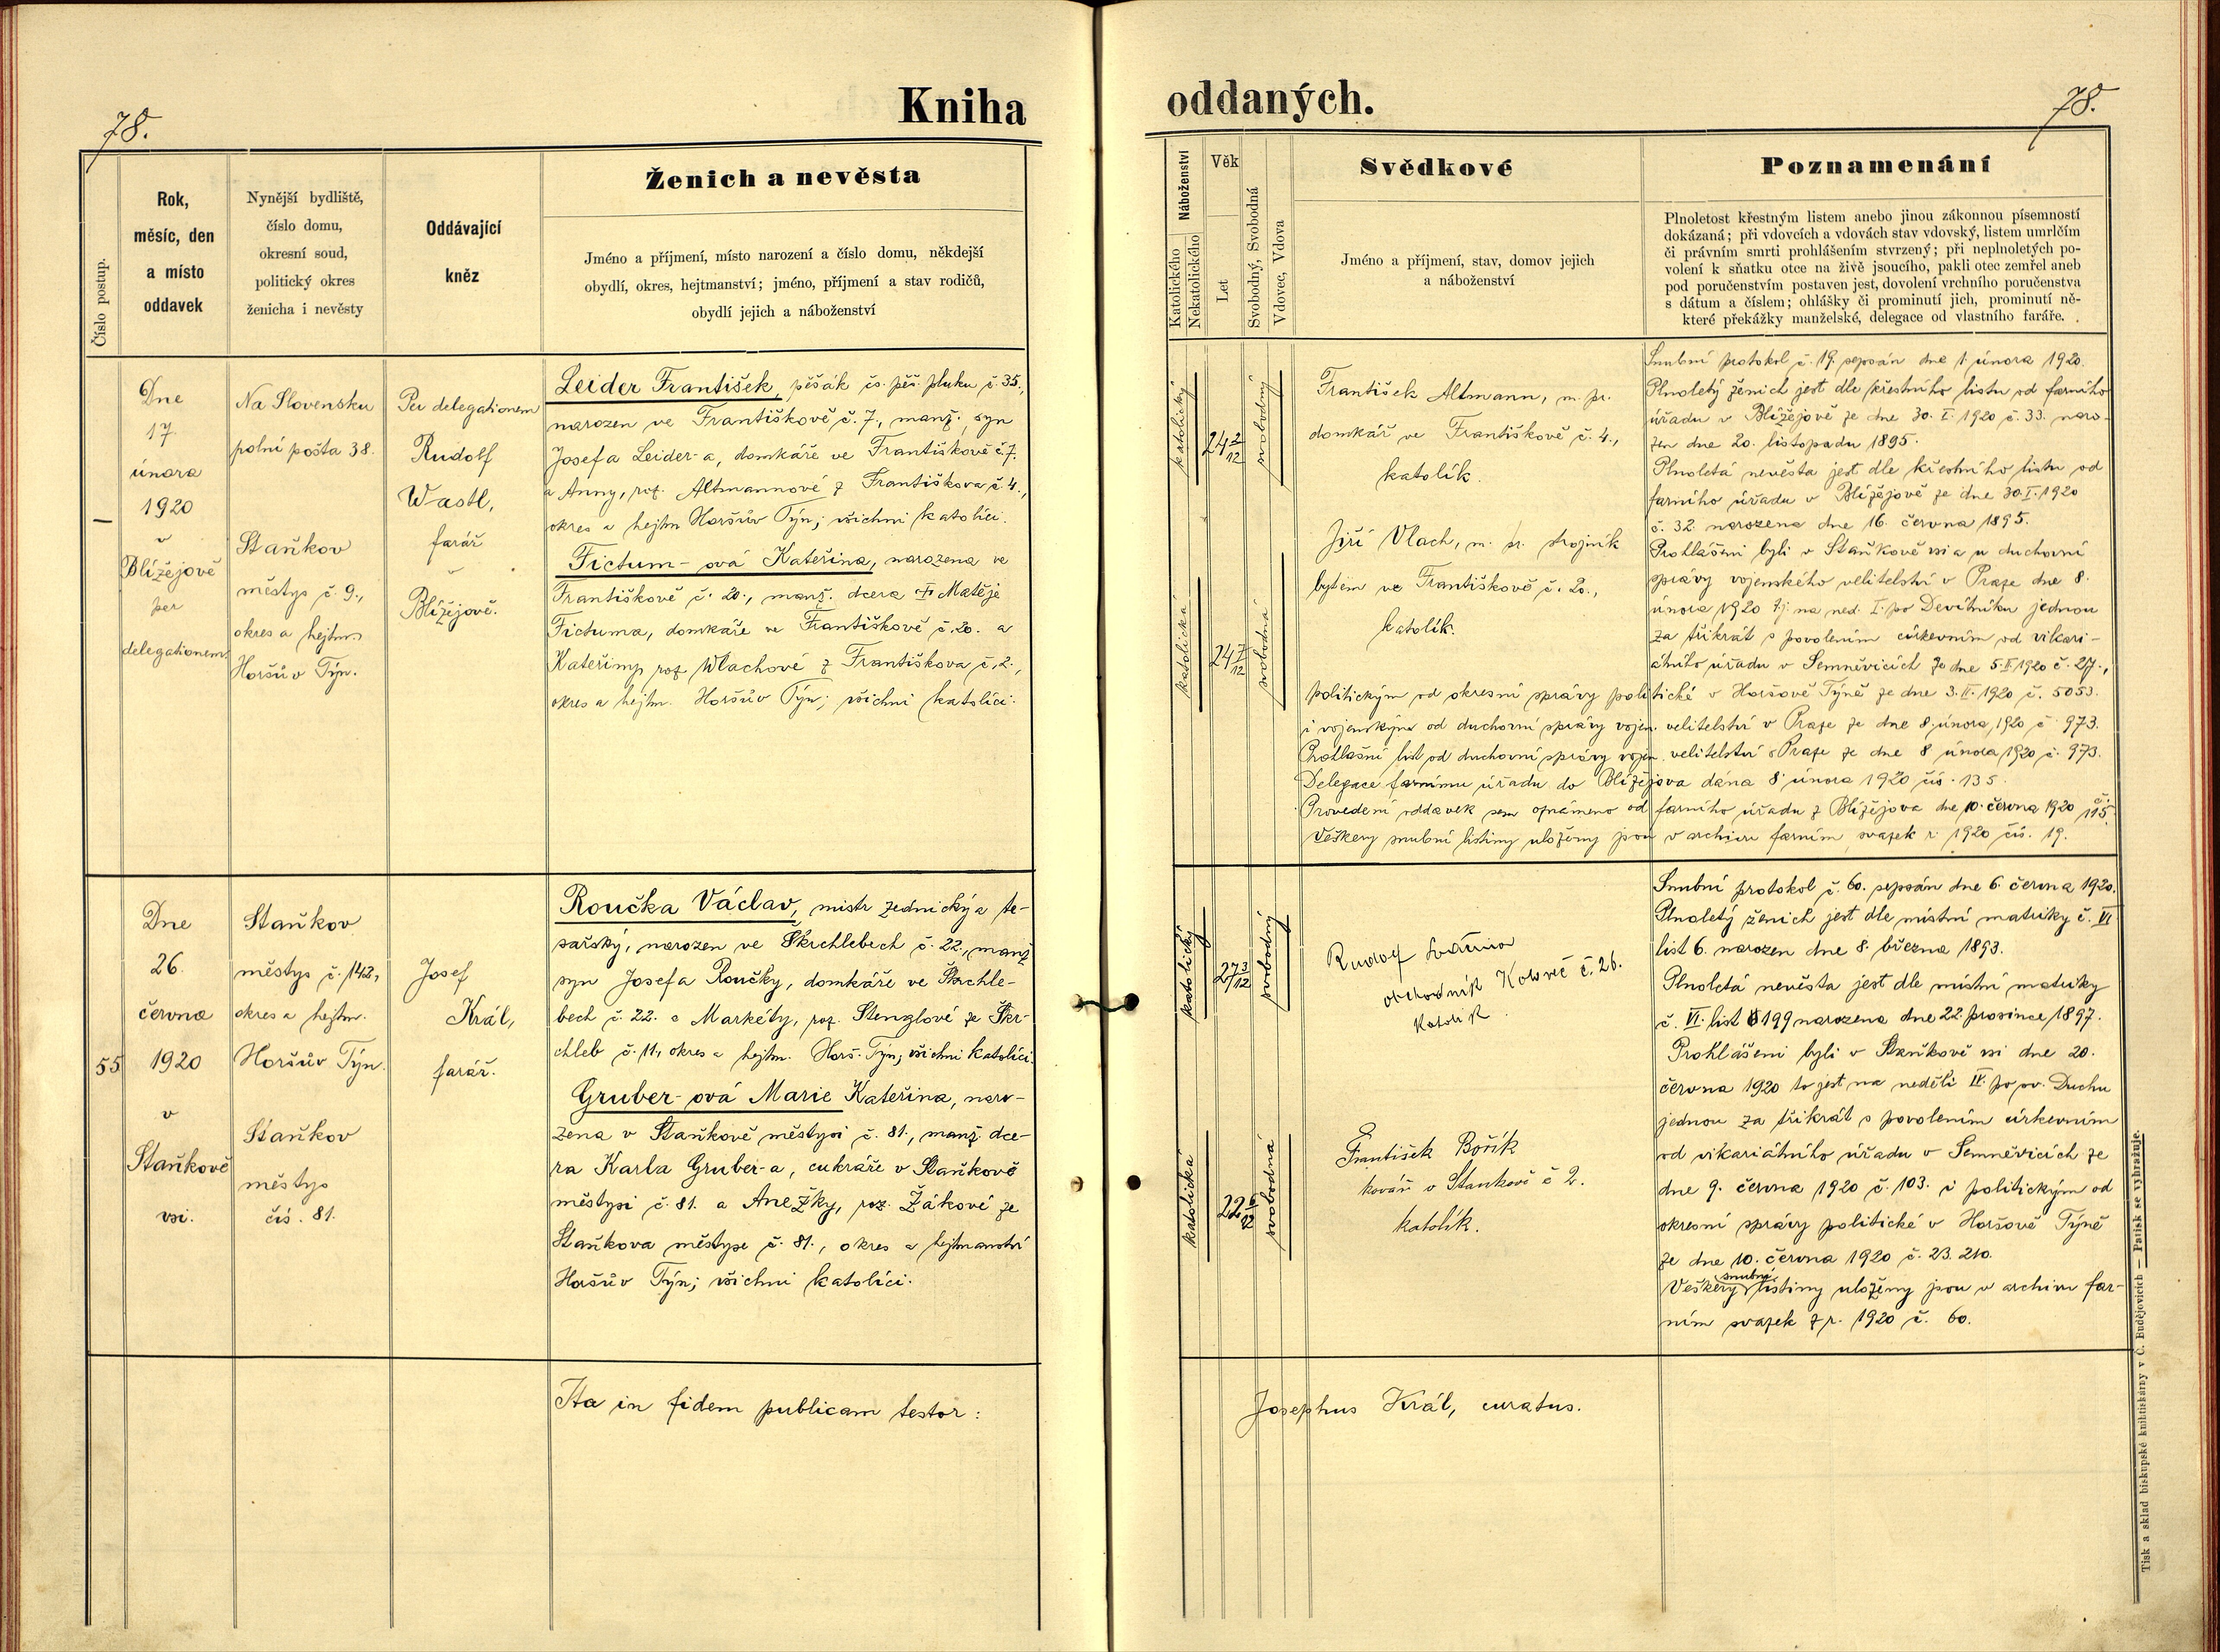 78.
Kniha
Číslo postup.
Rok,
měsíc, den
a místo
oddavek
Nynější bydliště,
číslo domu,
okresní soud,
politický okres
ženicha i nevěsty
Oddávající
kněz
Ženich a nevěsta
Jméno a příjmení, místo narození a číslo domu, někdejší
obydlí, okres, hejtmanství; jméno, příjmení a stav rodičů,
obydlí jejich a náboženství
—
Dne
17.
února
1920
v
Blížejově
per
delegationem
Na Slovensku
polní pošta 38.
Staňkov
městys č. 9.,
okres a hejtm.
Horšův Týn.
Per delegationem
Rudolf
Wastl,
farář
v
Blížejově.
Leider František, pěšák čs. pěš. pluku č. 35.,
narozen ve Františkově č. 7., manž. syn
Josefa Leider-a, domkáře ve Františkově č. 7.
a Anny, roz. Altmannové z Františkova č. 4.,
okres a hejtm Horšův Týn; všichni katolíci.
Fictum-ová Kateřina, narozena ve
Františkově č. 20., manž. dcera † Matěje
Fictuma, domkáře ve Františkově č. 20. a
Kateřiny roz. Wlachové z Františkova č. 2.,
okres a hejtm. Horšův Týn; všichni katolíci.
55
Dne
26.
června
1920
v
Staňkově
vsi.
Staňkov
městys č. 142,
okres a hejtm.
Horšův Týn.
Staňkov
městys
čís. 81.
Josef
Král,
farář.
Roučka Václav, mistr zednický a te-
sařský, narozen ve Škrchlebech č. 22., manž
syn Josefa Roučky, domkáře ve Škrchle-
bech č. 22. a Markéty, roz. Stenglové ze Škr-
chleb č. 11, okres a hejtm. Horš. Týn; všichni katolíci.
Gruber-ová Marie Kateřina, naro-
zena v Staňkově městysi č. 81., manž dce-
ra Karla Gruber-a, cukráře v Staňkově
městysi č. 81. a Anežky, roz. Žákové ze
Staňkova městyse č. 81., okres a hejtmanství
Horšův Týn; všichni katolíci.
Ita in fidem publicam testor:
oddaných.
78.
Náboženství
Katolického
Nekatolického
Věk
Let
Svobodný, Svobodná
Vdovec, Vdova
Svědkové
Jméno a příjmení, stav, domov jejich
a náboženství
Poznamenání
Plnoletost křestným listem anebo jinou zákonnou písemností
dokázaná; při vdovcích a vdovách stav vdovský, listem umrlčím
či právním smrti prohlášením stvrzený; při neplnoletých po-
volení k sňatku otce na živě jsoucího, pakli otec zemřel aneb
pod poručenstvím postaven jest, dovolení vrchního poručenstva
s dátum a číslem; ohlášky či prominutí jich, prominutí ně-
které překážky manželské, delegace od vlastního faráře.
katolický
24 2/12
svobodný
katolická
24 7/12
svobodná
František Altmann, m. pr.
domkář ve Františkově č. 4.,
katolík.
Jiří Vlach, m. pr. strojník
bytem ve Františkově č. 20.,
katolík.
Snubní protokol č. 19. sepsán dne 1. února 1920.
Plnoletý ženich jest dle křestního listu od farního
úřadu v Blížejově ze dne 30. I. 1920 č. 33. naro-
zen dne 20. listopadu 1895.
Plnoletá nevěsta jest dle křestního listu od
farního úřadu v Blížejově ze dne 30. I. 1920
č. 32. narozena dne 16. června 1895.
Prohlášeni byli v Staňkově vsi a u duchovní
správy vojenského velitelství v Praze dne 8.
února 1920 tj. na ned. I. po Devítníku jednou
za třikrát s povolením církevním od vikari-
átního úřadu v Semněvicích ze dne 5. II 1920 č. 27.,
politickým od okresní správy politické v Horšově Týně ze dne 3. II. 1920 č. 5053.
i vojenským od duchovní správy vojen. velitelství v Praze ze dne 8. února 1920 č. 973.
Prohlašní list od duchovní správy vojen. velitelství v Praze ze dne 8 února 1920 č. 973.
Delegace farnímu úřadu do Blížejova dána 8. února 1920 čís. 135.
Provedení oddavek sem oznámeno od farního úřadu z Blížejova dne 10. června 1920 č. 115.
Veškery snubní listiny uloženy jsou v archivu farním svazek r. 1920 čís. 19.
katolický
27 3/12
svobodný
katolická
22 6/12
svobodná
Rudolf
obchodník Koloveč č. 26.
Katolík.
František Bořík
kovář v Staňkově č 2.
katolík.
Snubní protokol č. 60. sepsán dne 6. června 1920.
Plnoletý ženich jest dle místní matriky č. VI
list 6. narozen dne 8. března 1893.
Plnoletá nevěsta jest dle místní matriky
č. VI. list 199 narozena dne 22. prosince 1897.
Prohlášeni byli v Staňkově vsi dne 20.
června 1920 to jest na neděli IV. po sv. Duchu
jednou za třikrát s povolením církevním
od vikariátního úřadu v Semněvicích ze
dne 9. června 1920 č. 103. i politickým od
okresní správy politické v Horšově Týně
ze dne 10. června 1920 č. 23.210.
Veškery snubní listiny uloženy jsou v archivu far-
ním svazek z r. 1920 č. 60.
Josephus Král, curatus.
Tisk a sklad biskupské knihtiskárny v Č. Budějovicích — Patisk se vyhražuje.